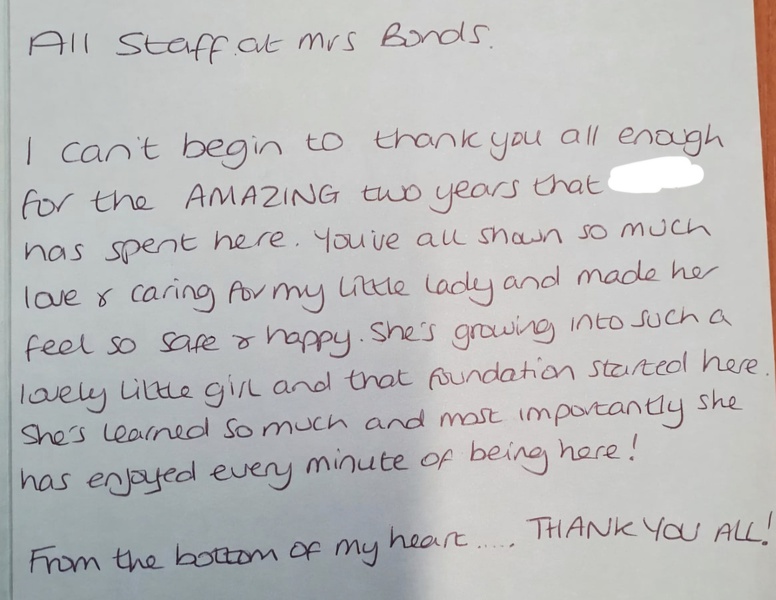 All Staff at Mrs Bonds.
I can't begin to thank you all enough
for the AMAZING two years that
has spent here. You've all shown so much
love & caring for my little lady and made her
feel so safe & happy. She's growing into such a
lovely little girl and that foundation started here.
She's learned so much and most importantly she
has enjoyed every minute of being here!
From the bottom of my heart..... THANK YOU ALL!